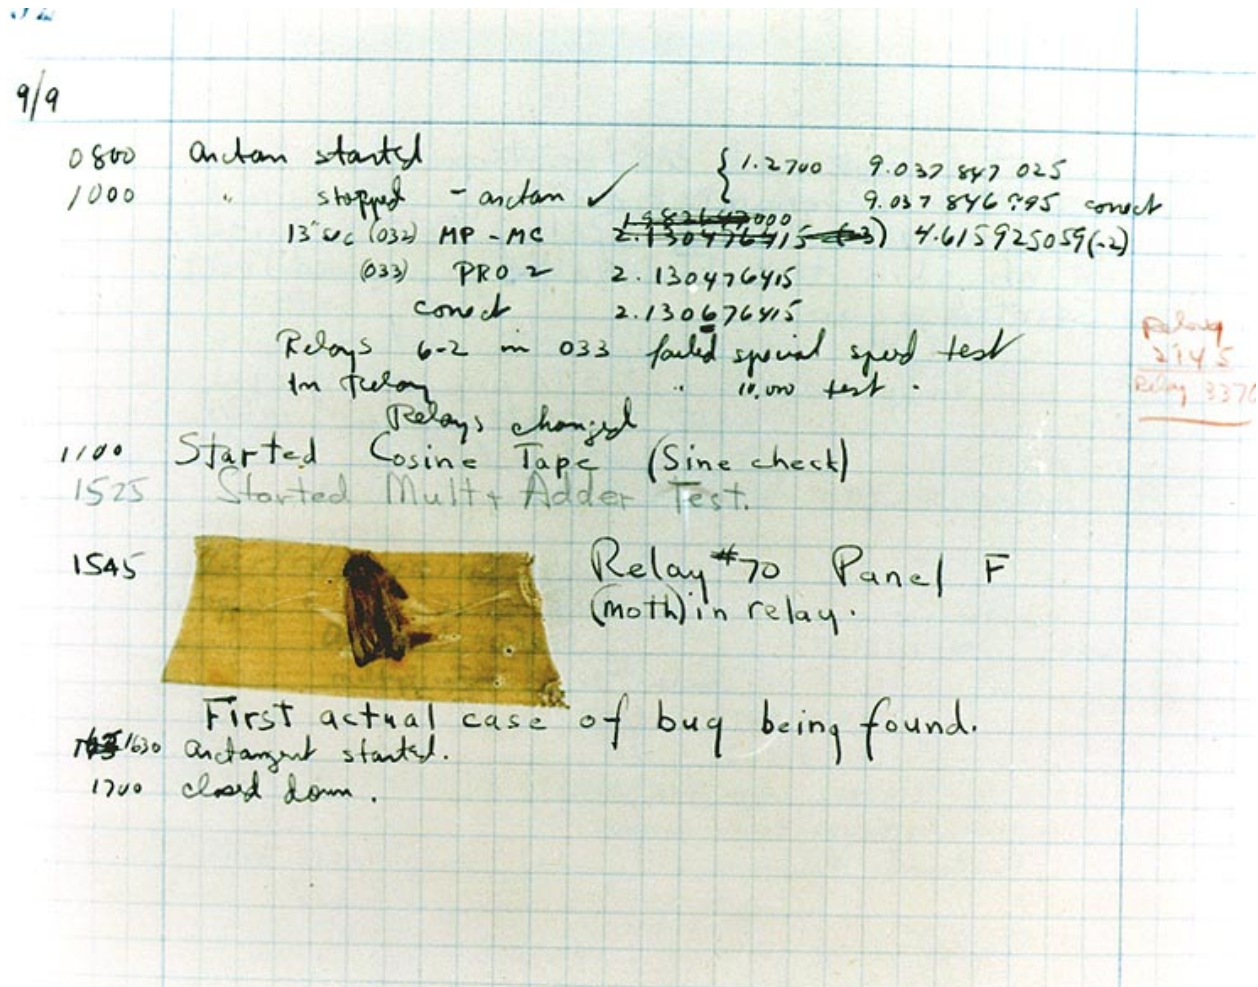 9/9
0800 arctan started { 1.2700 9.037 847 025
1000 " stopped - arctan ✓ 9.037 846 995 correct
1982647000
13" sec (032) MP - MC 2.130476415 (-3) 4.615925059(-2)
(033) PRO 2 2.130476415
correct 2.130676415
Relays 6-2 in 033 failed special speed test
In Relay " 10,000 test .
Relays changed
Relay
2145
Relay 3370
1100 Started Cosine Tape (Sine check)
1525 Started Mult + Adder Test.
1545 Relay #70 Panel F
(moth) in relay.
First actual case of bug being found.
1630 arctangent started.
1700 closed down .